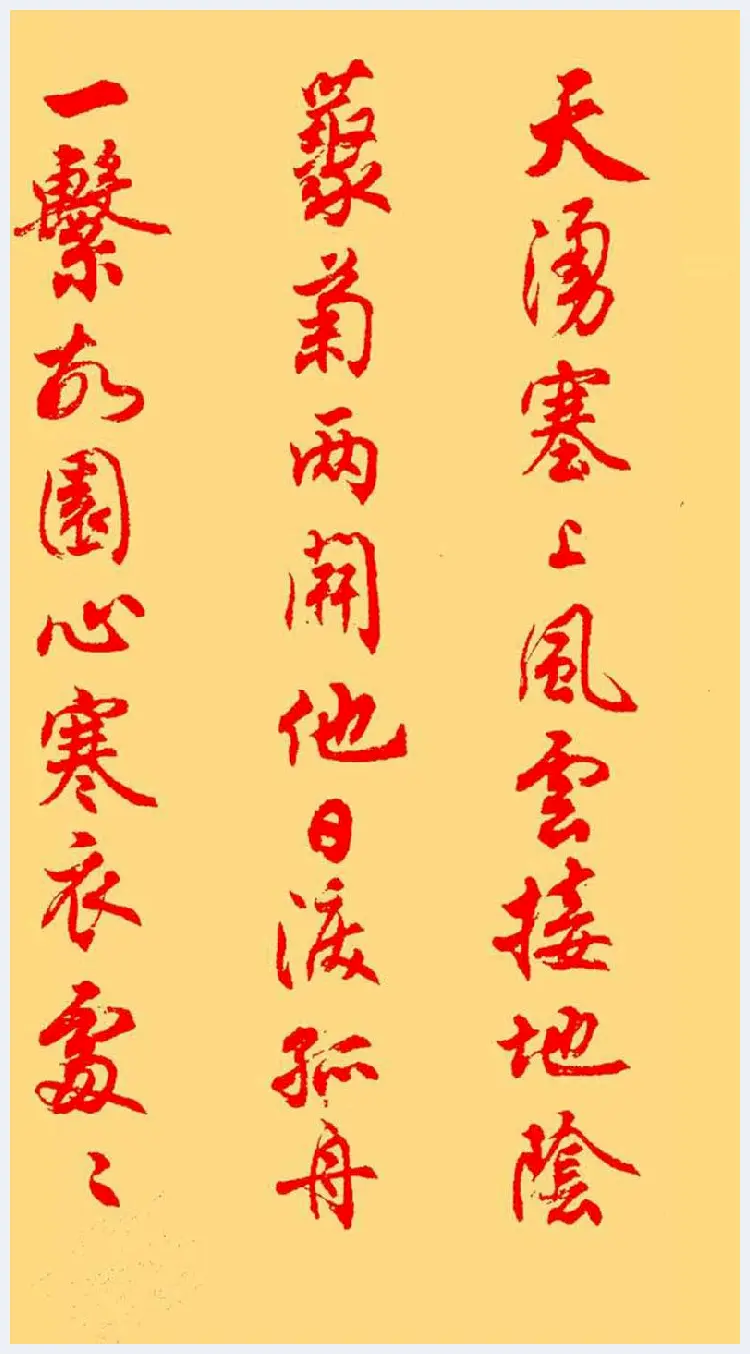 天湧塞上風雲接地陰
藂菊两開他日淚孤舟
一繫故園心寒衣處〻